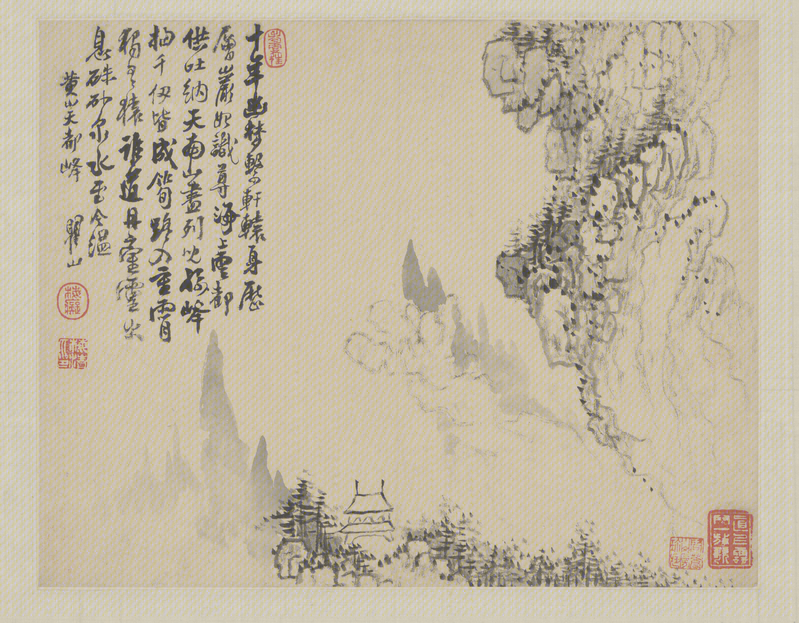 十年幽夢繫軒轅身歷
層巖始識尊海上雲都
供吐納天南山盡列兒孫峰
抽千仞皆成筍路入重霄
獨有猿誰道丹臺靈火
息硃砂泉水至今溫
黃山天都峰 瞿山